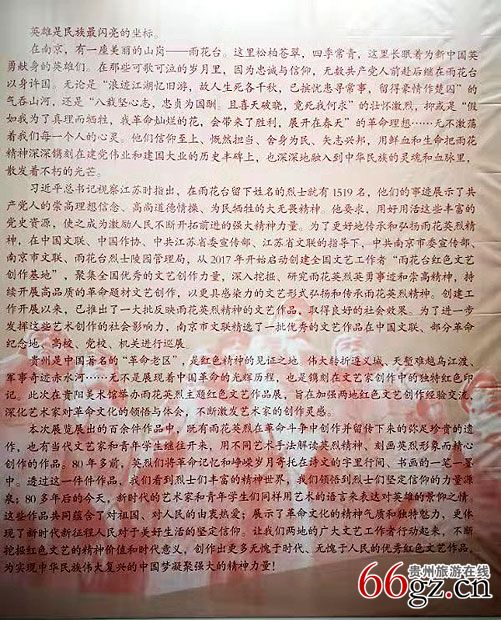 英雄是民族最闪亮的坐标。
在南京，有一座美丽的山岗——雨花台。这里松柏苍翠，四季常青，这里长眠着为新中国英
勇献身的英雄们。在那些可歌可泣的岁月里，因为忠诚与信仰，无数共产党人前赴后继在雨花台
以身许国。无论是“浪迹江湖忆旧游，故人生死各千秋，已摈忧患寻常事，留得豪情作楚囚”的
气吞山河，还是“人救坚心志，忠贞为国酬。且喜天破晓，竟死我何求”的壮怀激烈，抑或是“假
如我为了真理而牺牲，我革命灿烂的花，会带来了胜利，展开在春天”的革命理想……无不激荡
着我们每一个人的心灵。他们信仰至上、慨然担当、舍身为民、矢志兴邦，用鲜血和生命把雨花
精神深深镌刻在建党伟业和建国大业的历史丰碑上，也深深地融入到中华民族的灵魂和血脉里，
散发着不朽的光芒。
习近平总书记视察江苏时指出，在雨花台留下姓名的烈士就有1519名，他们的事迹展示了共
产党人的崇高理想信念、高尚道德情操、为民牺牲的大无畏精神。他要求，用好用活这些丰富的
党史资源，使之成为激励人民不断开拓前进的强大精神力量。为了更好地传承和弘扬雨花英烈精
神，在中国文联、中国作协、中共江苏省委宣传部、江苏省文联的指导下，中共南京市委宣传部、
南京市文联、雨花台烈士陵园管理局，从2017年开始启动创建全国文艺工作者“雨花台红色文艺
创作基地”，聚集全国优秀的文艺创作力量，深入挖掘、研究雨花英烈英勇事迹和崇高精神，持
续开展高品质的革命题材文艺创作，以更具感染力的文艺形式弘扬和传承雨花英烈精神。创建工
作开展以来，已推出了一大批反映雨花英烈精神的文艺作品，取得良好的社会效果。为了进一步
发挥这些艺术创作的社会影响力，南京市文联精选了一批优秀的文艺作品在中国文联、部分革命
纪念地、高校、党校、机关进行巡展。
贵州是中国著名的“革命老区”，是红色精神的见证之地。伟大转折遵义城、天堑雄越乌江渡、
军事奇迹赤水河……无不是展现着中国革命的光辉历程，也是镌刻在文艺家创作中的独特红色印
记。此次在贵阳美术馆举办雨花英烈主题红色文艺作品展，旨在加强两地红色文艺创作经验交流，
深化艺术家对革命文化的领悟与体会，不断激发艺术家的创作灵感。
本次展览展出的百余件作品中，既有雨花英烈在革命斗争中创作并留传下来的弥足珍贵的遗
作，也有当代文艺家和青年学生继往开来，用不同艺术手法解读英烈精神、刻画英烈形象而精心
创作的作品。80年多前，英烈们将革命记忆和峥嵘岁月寄托在诗文的字里行间、书画的一笔一墨
中。透过这一件件作品，我们看到烈士们丰富的精神世界，我们领悟到烈士们坚定信仰的力量源
泉；80多年后的今天，新时代的艺术家和青年学生们同样用艺术的语言来表达对英雄的景仰之情。
这些作品共同蕴含了对祖国、对人民的由衷热爱；展示了革命文化的精神气质和独特魅力，更体
现了新时代新征程人民对于美好生活的坚定信仰。让我们两地的广大文艺工作者行动起来，不断
挖掘红色文艺的精神价值和时代意义，创作出更多无愧于时代、无愧于人民的优秀红色文艺作品，
为实现中华民族伟大复兴的中国梦凝聚强大的精神力量！
66gz.cn
贵州旅游在线